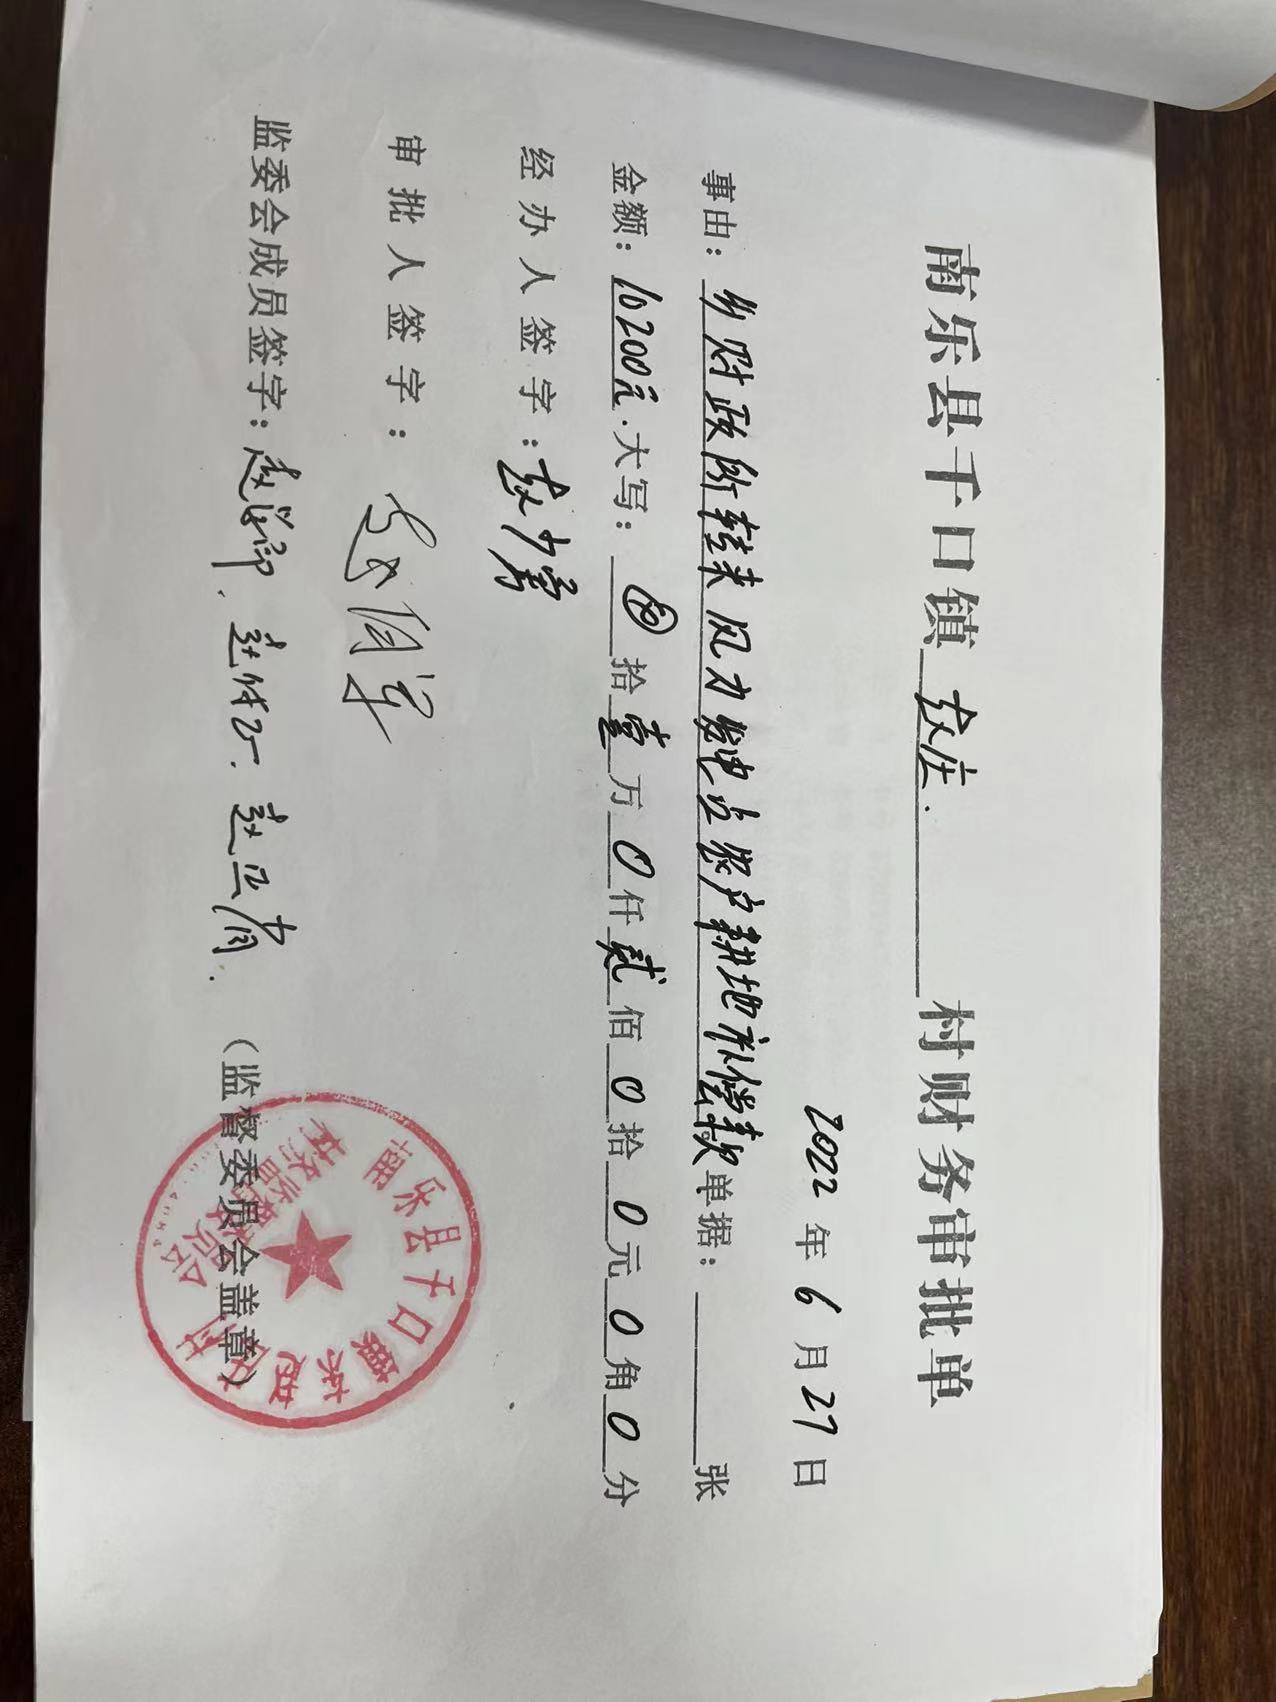 南乐县千口镇 赵庄 村财务审批单
2022年6月27日
事由：乡财政所转来风力发电占农户耕地补偿款单据：张
金额：10200元.大写：⊗拾壹万0仟贰佰0拾0元0角0分
经办人签字：
审批人签字：
监委会成员签字：（监督委员会盖章）
南乐县千口镇
村务监督
委员会